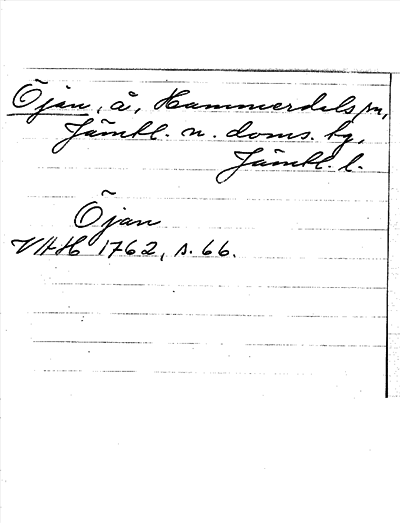 Öjan, å, Hammerdals sn,
Jämtl. n. doms. tg,
Jämtl. l.
Öjan
VAH 1762, s. 66.